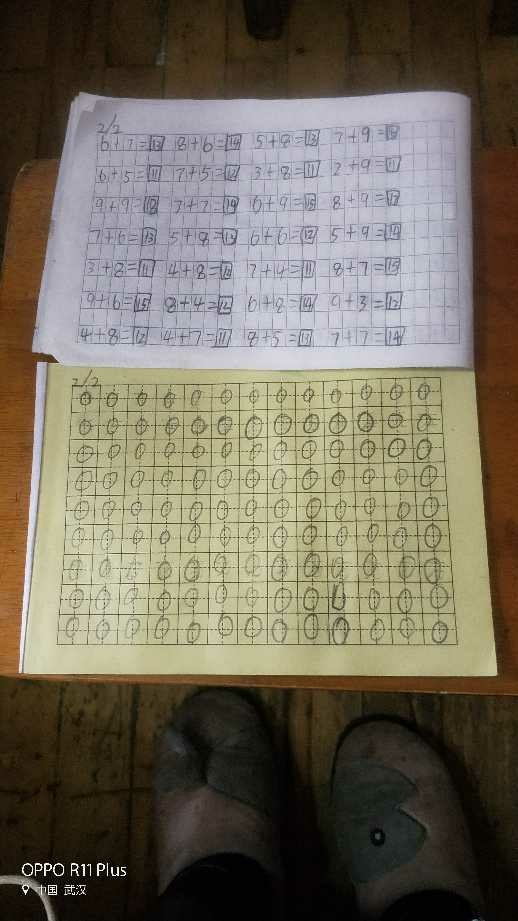 2/2
6+7=13 8+6=14 5+8=13 7+9=16
6+5=11 7+5=12 3+8=11 2+9=11
9+9=18 7+7=14 6+9=15 8+9=17
7+6=13 5+8=13 6+6=12 5+9=14
3+8=11 4+8=12 7+4=11 8+7=15
9+6=15 8+4=12 6+8=14 9+3=12
4+8=12 4+7=11 8+5=13 7+7=14
2/2
0 0 0 0 0 0 0 0 0 0 0 0 0
0 0 0 0 0 0 0 0 0 0 0 0 0
0 0 0 0 0 0 0 0 0 0 0 0 0
0 0 0 0 0 0 0 0 0 0 0 0 0
0 0 0 0 0 0 0 0 0 0 0 0 0
0 0 0 0 0 0 0 0 0 0 0 0 0
0 0 0 0 0 0 0 0 0 0 0 0 0
0 0 0 0 0 0 0 0 0 0 0 0 0
0 0 0 0 0 0 0 0 0 0 0 0 0
OPPO R11 Plus
中国 武汉